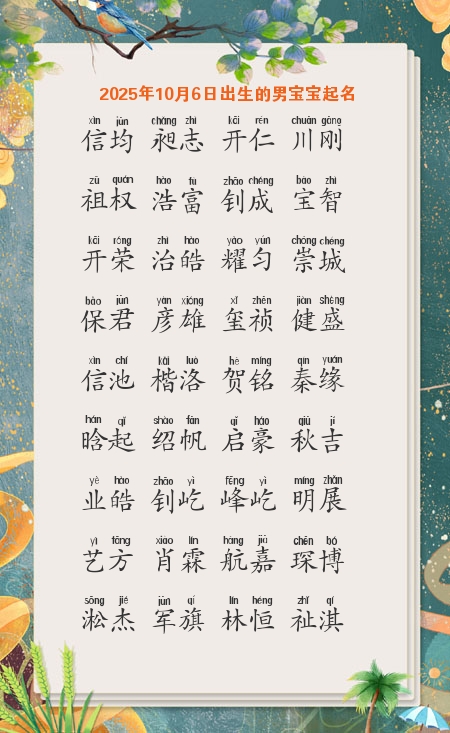 2025年10月6日出生的男宝宝起名
xìn jūn chǎng zhì kāi rén chuān gāng
信均 昶志 开仁 川刚
zǔ quán hào fù zhāo chéng bǎo zhì
祖权 浩富 钊成 宝智
kāi róng zhì hào yào yún chóng chéng
开荣 治皓 耀匀 崇城
bǎo jūn yàn xióng xǐ zhēn jiàn shèng
保君 彦雄 玺祯 健盛
xìn chí kǎi luò hè míng qín yuán
信池 楷洛 贺铭 秦缘
hán qǐ shào fān qǐ háo qiū jí
晗起 绍帆 启豪 秋吉
yè hào zhāo yì fēng yì míng zhǎn
业皓 钊屹 峰屹 明展
yì fāng xiào lín háng jiā chēn bó
艺方 肖霖 航嘉 琛博
sōng jié jūn qí lín héng zhǐ qí
淞杰 军旗 林恒 祉淇